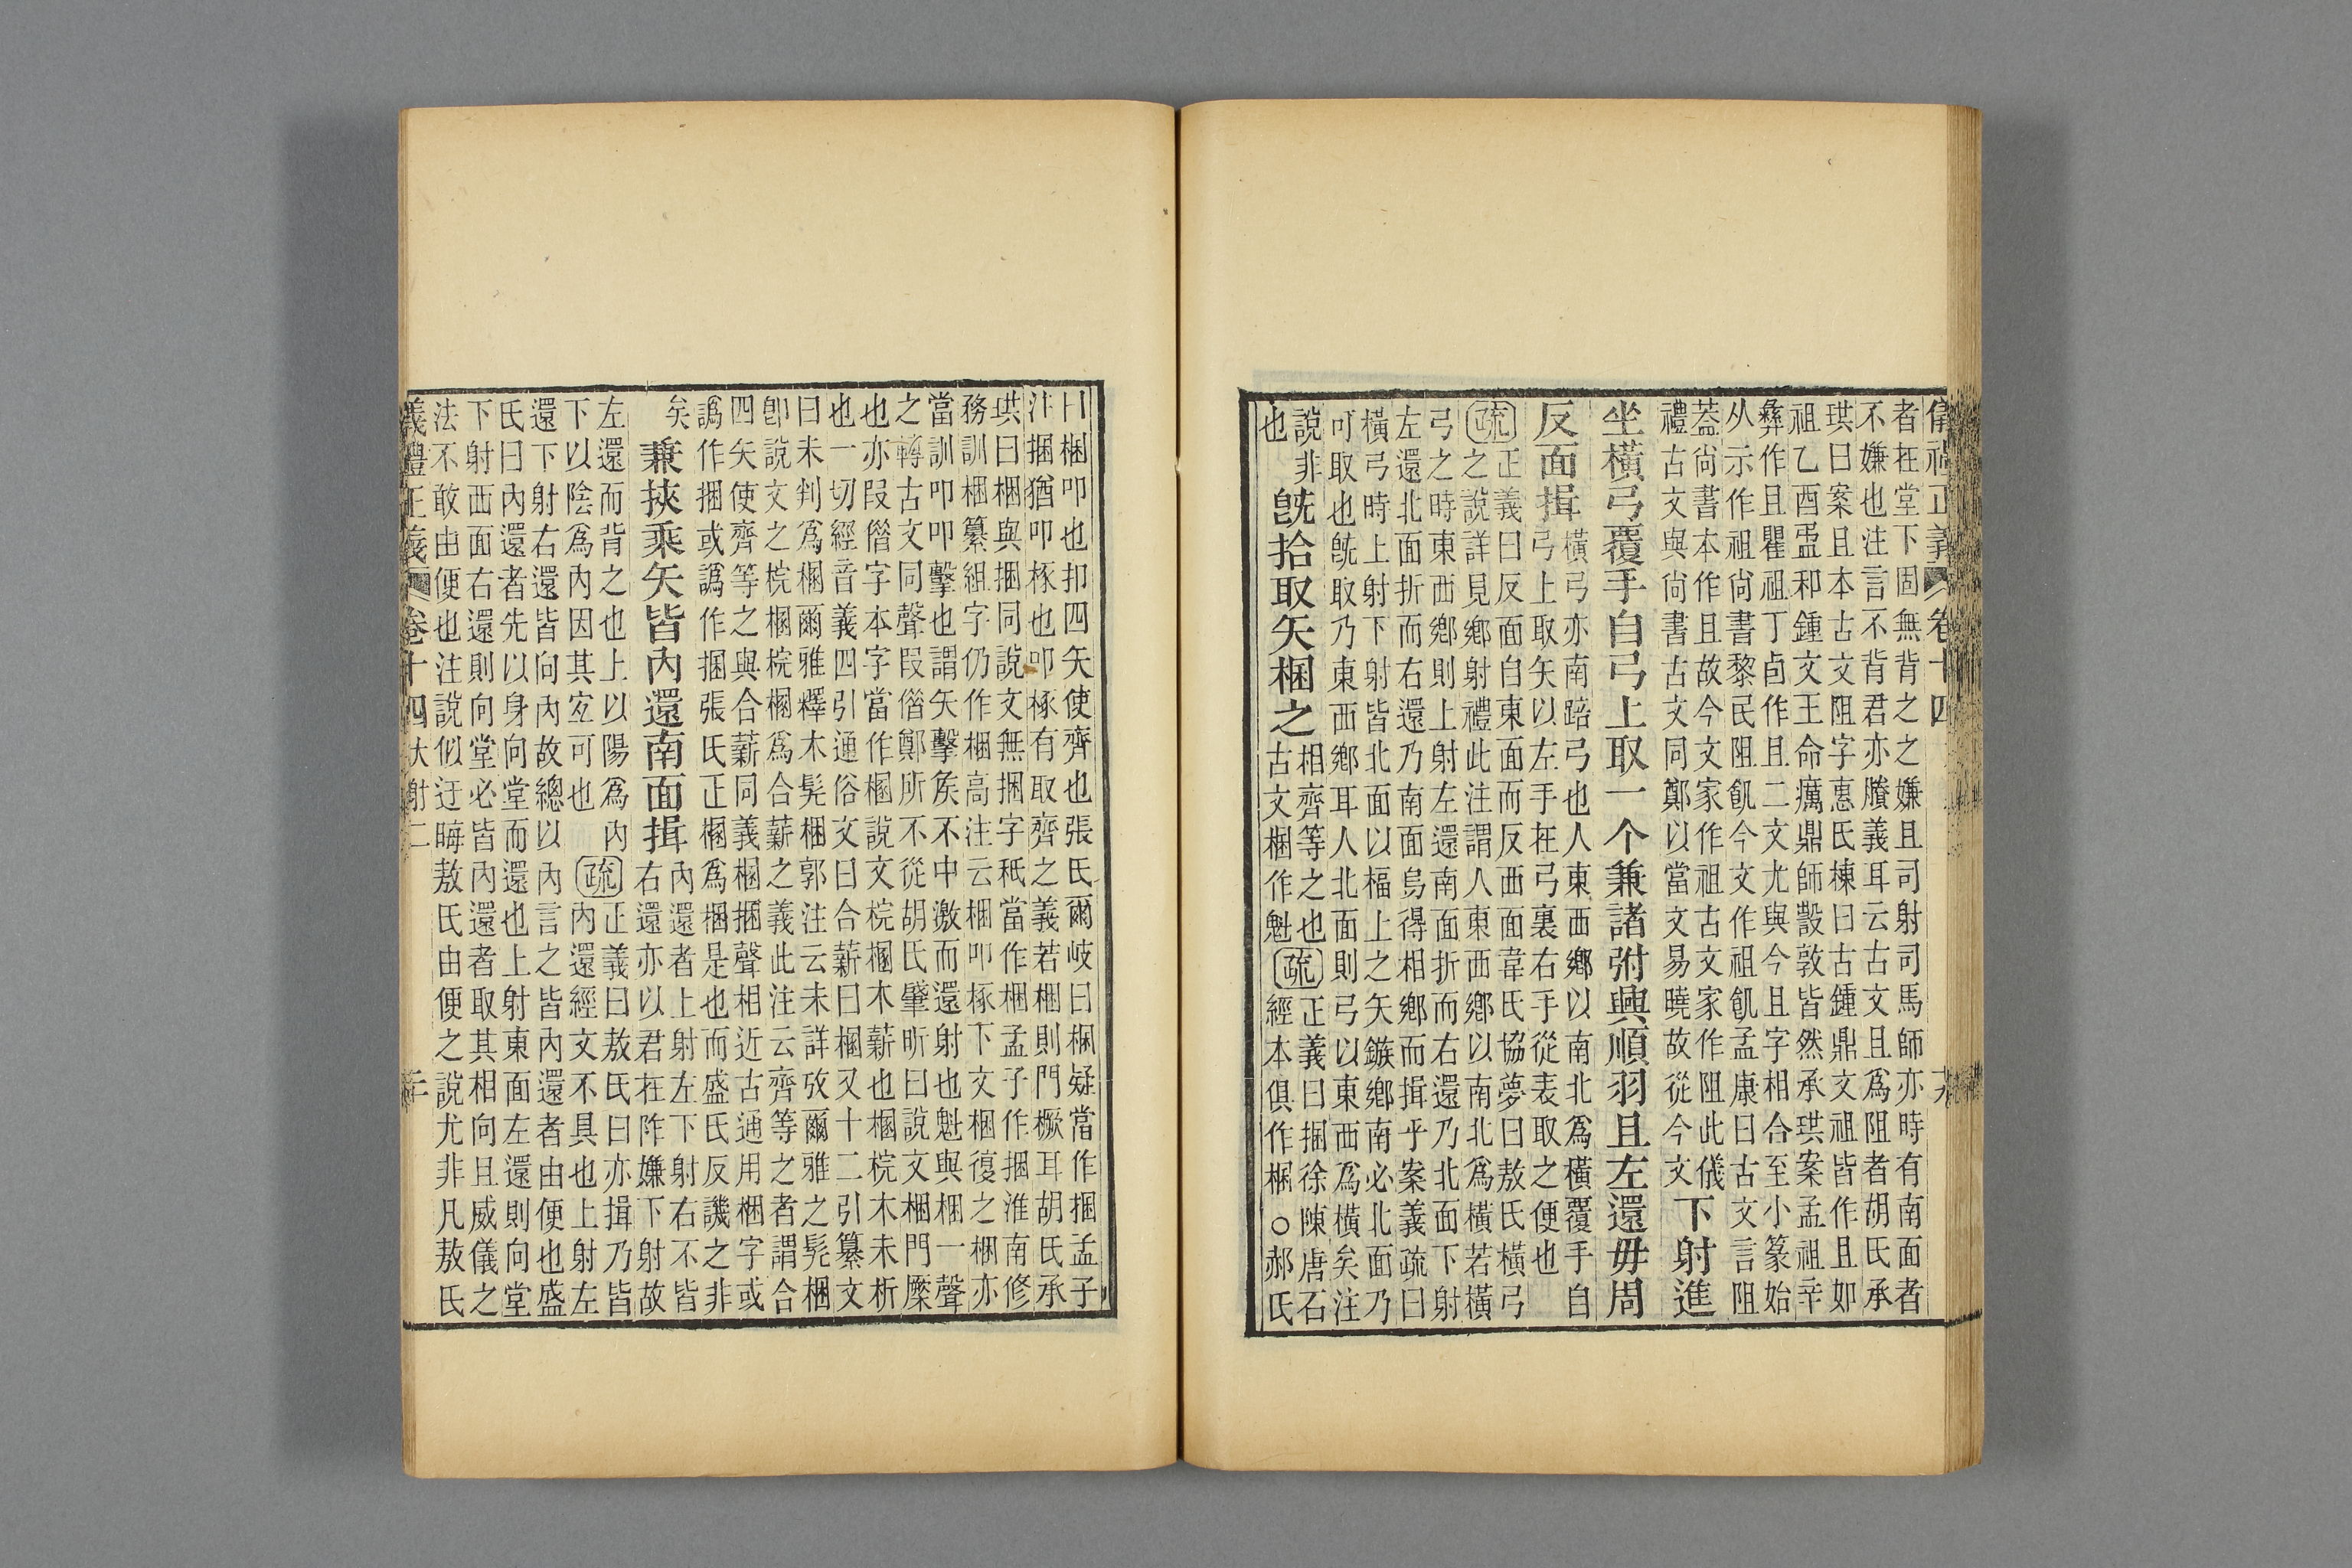 儀禮正義 卷十四
者在堂下固無背之之嫌且司射司馬師亦時有南面者
不嫌也注言不背君亦賸義耳云古文且為阻者胡氏承
珙曰案且本古文阻字惠氏棟曰古鐘鼎文祖皆作且如
祖乙酉盉和鍾文王命癘鼎師敦皆然承珙案孟祖辛
彝作且瞿祖丁卣作且二文尤與今且字相合至小篆始
从示作祖尚書黎民阻飢今文作祖飢孟康曰古文言阻
蓋尚書本作且故今文家作祖古文家作阻此儀
禮古文與尚書古文同鄭以當文易曉故從今文
下射進
坐橫弓覆手自弓上取一个兼諸弣興順羽且左還毋周
反面揖
橫弓亦南踣弓也人東西鄉以南北為橫覆手自
弓上取矢以左手在弓裏右手從表取之便也
疏正義曰反面自東面而反西面韋氏協夢曰敖氏橫弓
之說詳見鄉射禮此注謂人東西鄉以南北為橫若橫
弓之時東西鄉則上射左還南面折而右還乃北面下射
左還北面折而右還乃南面烏得相鄉而揖乎案義疏曰
橫弓時上射下射皆北面以楅上之矢鏃鄉南必北面乃
可取也旣取乃東西鄉耳人北面則弓以東西為橫矣注
說非
也
旣拾取矢梱之
相齊等之也
古文梱作魁
疏
正義曰捆徐陳唐石
經本俱作梱○郝氏
曰梱叩也扣四矢使齊也張氏爾岐曰梱疑當作捆孟子
注捆猶叩㧻也叩㧻有取齊之義若梱則門橛耳胡氏承
珙曰梱與捆同說文無捆字秖當作梱孟子作捆淮南修
務訓梱纂組字仍作梱高注云梱叩㧻下文梱復之梱亦
當訓叩叩擊也謂矢擊矦不中激而還射也魁與梱一聲
之轉古文同聲叚借鄭所不從胡氏肇昕曰說文梱門橜
也亦叚借字本字當作棞說文梡棞木薪也棞梡木未析
也一切經音義四引通俗文曰合薪曰棞又十二引纂文
曰未判為棞爾雅釋木髡梱郭注云未詳攷爾雅之髡梱
卽說文之梡棞梡棞為合薪之義此注云齊等之者謂合
四矢使齊等之與合薪同義棞捆聲相近古通用梱字或
譌作捆或譌作捆張氏正棞為梱是也而盛氏反譏之非
矣
兼挾乘矢皆內還南面揖
內還者上射左下射右不皆
右還亦以君在阼嫌下射故
左還而背之也上以陽為內
下以陰為內因其宜可也
疏
正義曰敖氏曰亦揖乃皆
內還經文不具也上射左
還下射右還皆向內故總以內言之皆內還者由便也盛
氏曰內還者先以身向堂而還也上射東面左還則向堂
下射西面右還則向堂必皆內還者取其相向且威儀之
法不敢由便也注說似迂晦敖氏由便之說尤非凡敖氏
義禮正義 卷十四 大射二